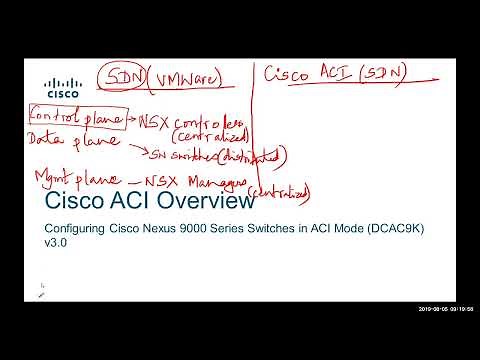 SDN (VMWare)
Cisco ACI (SDN)
CISCO
Control plane → NSX controllers
(centralized)
Data plane
→ SW switches (distributed)
Mgmt plane - NSX Managers
(centralized)
Cisco ACI Overview
Configuring Cisco Nexus 9000 Series Switches in ACI Mode (DCAC9K)
v3.0
2019-08-05 09:19:58